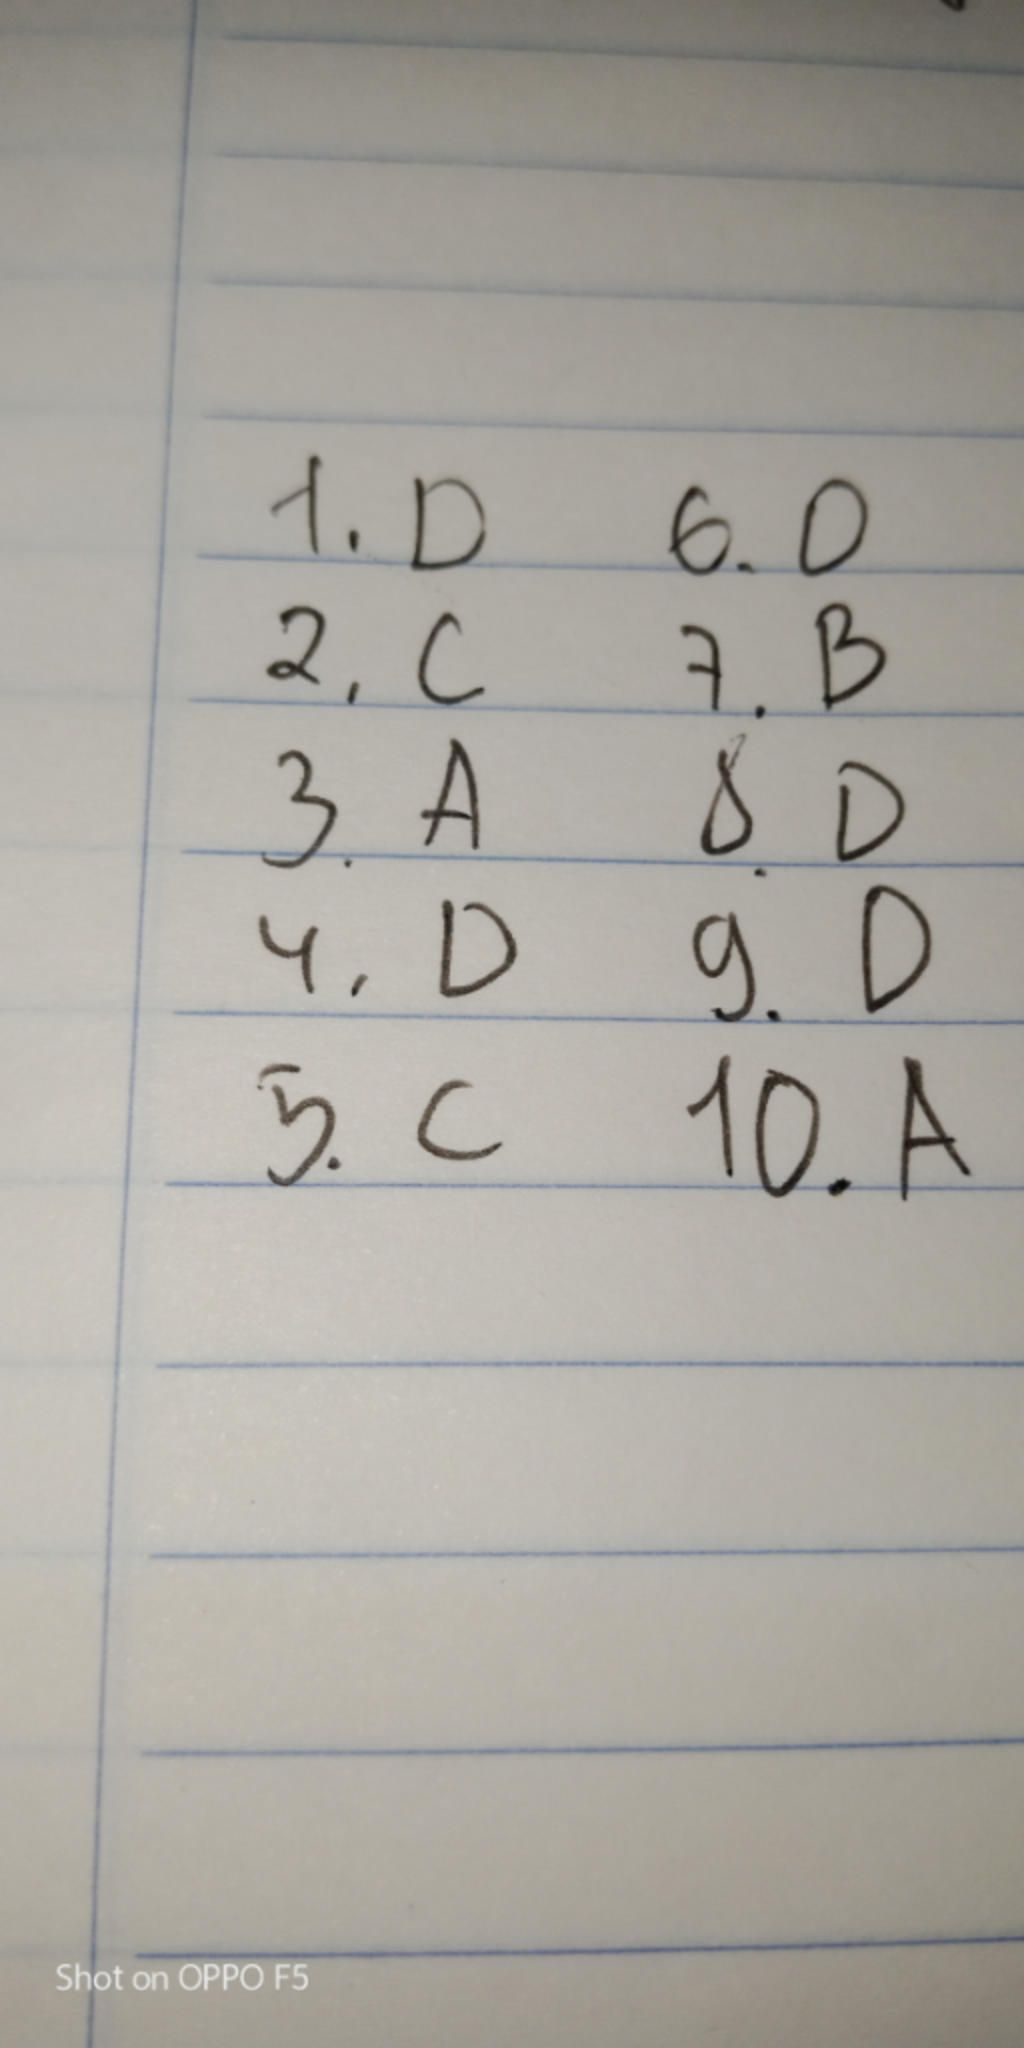 1. D 6. D
2, C 7. B
3. A 8. D
4, D 9. D
5. C 10. A
Shot on OPPO F5